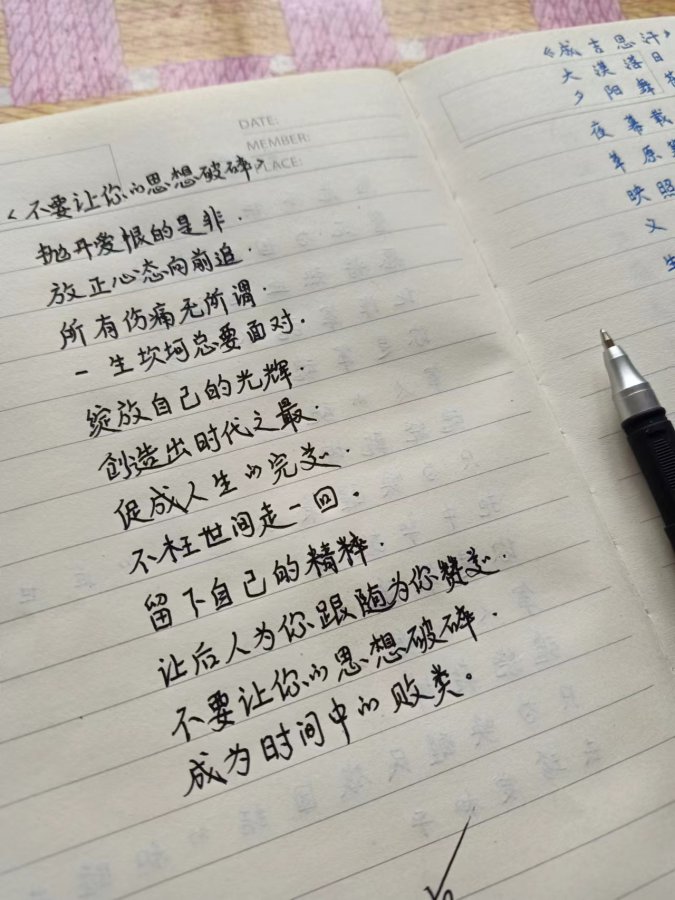 DATE:
MEMBER:
PLACE:
《不要让你的思想破碎》
抛开爱恨的是非.
放正心态向前追.
所有伤痛无所谓.
一生坎坷总要面对.
绽放自己的光辉.
创造出时代之最.
促成人生的完美.
不枉世间走一回.
留下自己的精粹.
让后人为你跟随为你赞美.
不要让你的思想破碎.
成为时间中的败类。
《成吉思汗》
大漠落日
夕阳舞
夜幕载
草原
映照
义
生